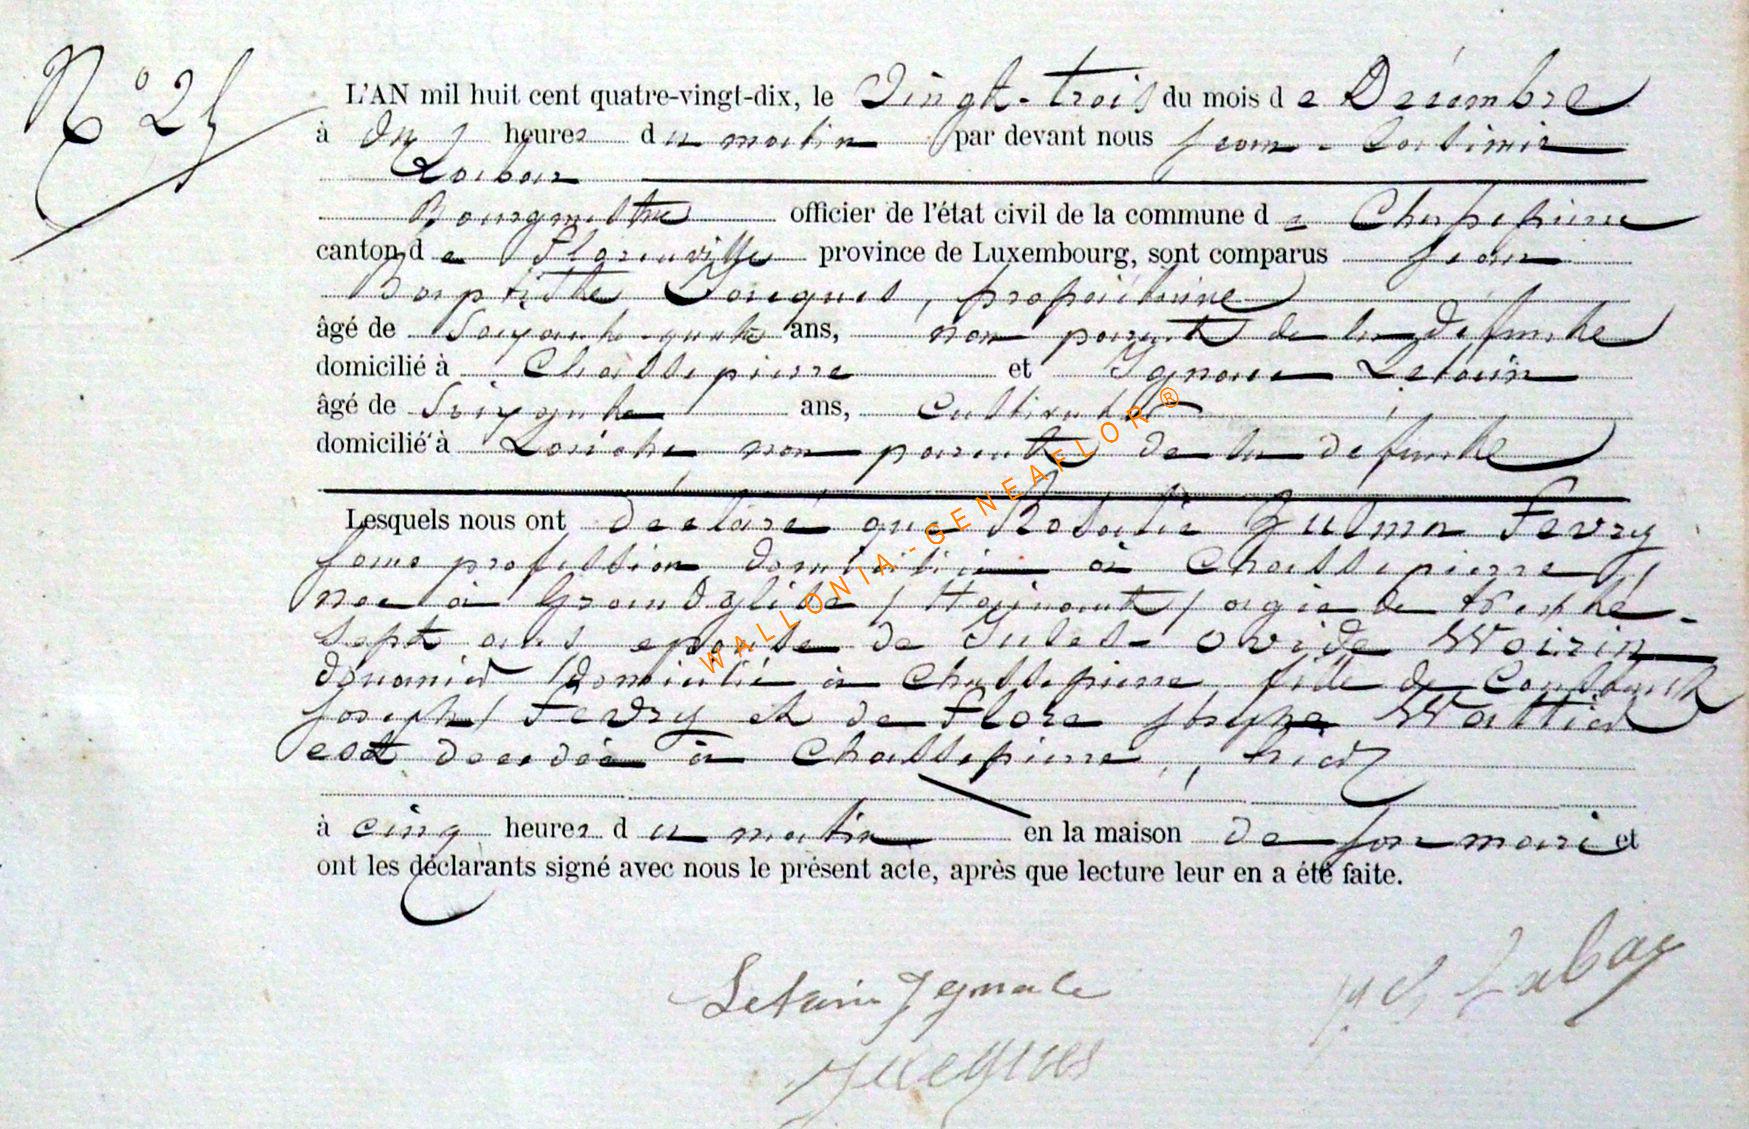 N° 25
L'AN mil huit cent quatre-vingt-dix, le Vingt-trois du mois de Décembre
à dix heures du matin par devant nous Jean-Casimir
Labar
Bourgmestre officier de l'état civil de la commune de Chassepierre
canton de Florenville province de Luxembourg, sont comparus Jean
Baptiste Jacques, propriétaire
âgé de Soixante-quatre ans, non parent de la défunte
domicilié à Chassepierre et Ignace Letain
âgé de Soixante ans, Cultivateur
domicilié à Laiche non parent de la défunte
Lesquels nous ont déclaré que Rosalie Zulma Fevry
sans profession domiciliée à Chassepierre
née à Grandglise (Hainaut) agée de trente-
sept ans epouse de Jules-Ovide Woirin
douanier domicilié à Chassepierre, fille de Constant
Joseph Fevry et de Flore Josephe Wattier
est decedée à Chassepierre, hier
à cinq heures du matin en la maison de son mari et
ont les déclarants signé avec nous le présent acte, après que lecture leur en a été faite.
Letain Ignace
J C Labar
Jacques
WALLONIA-GENEAFLOR ®